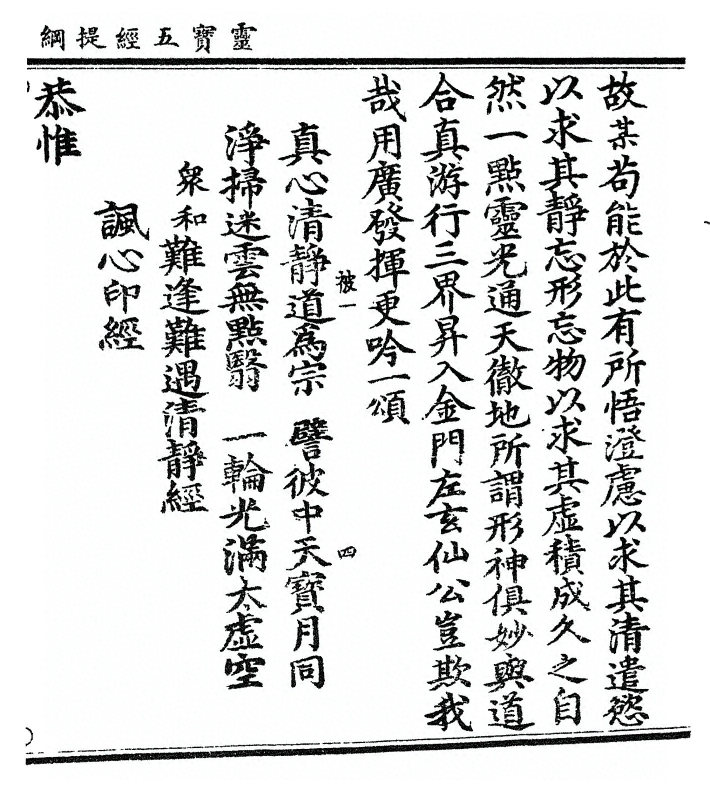 靈寶五經提綱
故某苟能於此有所悟澄慮以求其清遣慾
以求其靜忘形忘物以求其虛積成久之自
然一點靈光通天徹地所謂形神俱妙與道
合真游行三界昇入金門左玄仙公豈欺我
哉用廣發揮更吟一頌
被一
四
真心清靜道爲宗 譬彼中天寶月同
淨掃迷雲無點翳 一輪光滿太虛空
衆和難逢難遇清靜經
諷心印經
恭惟